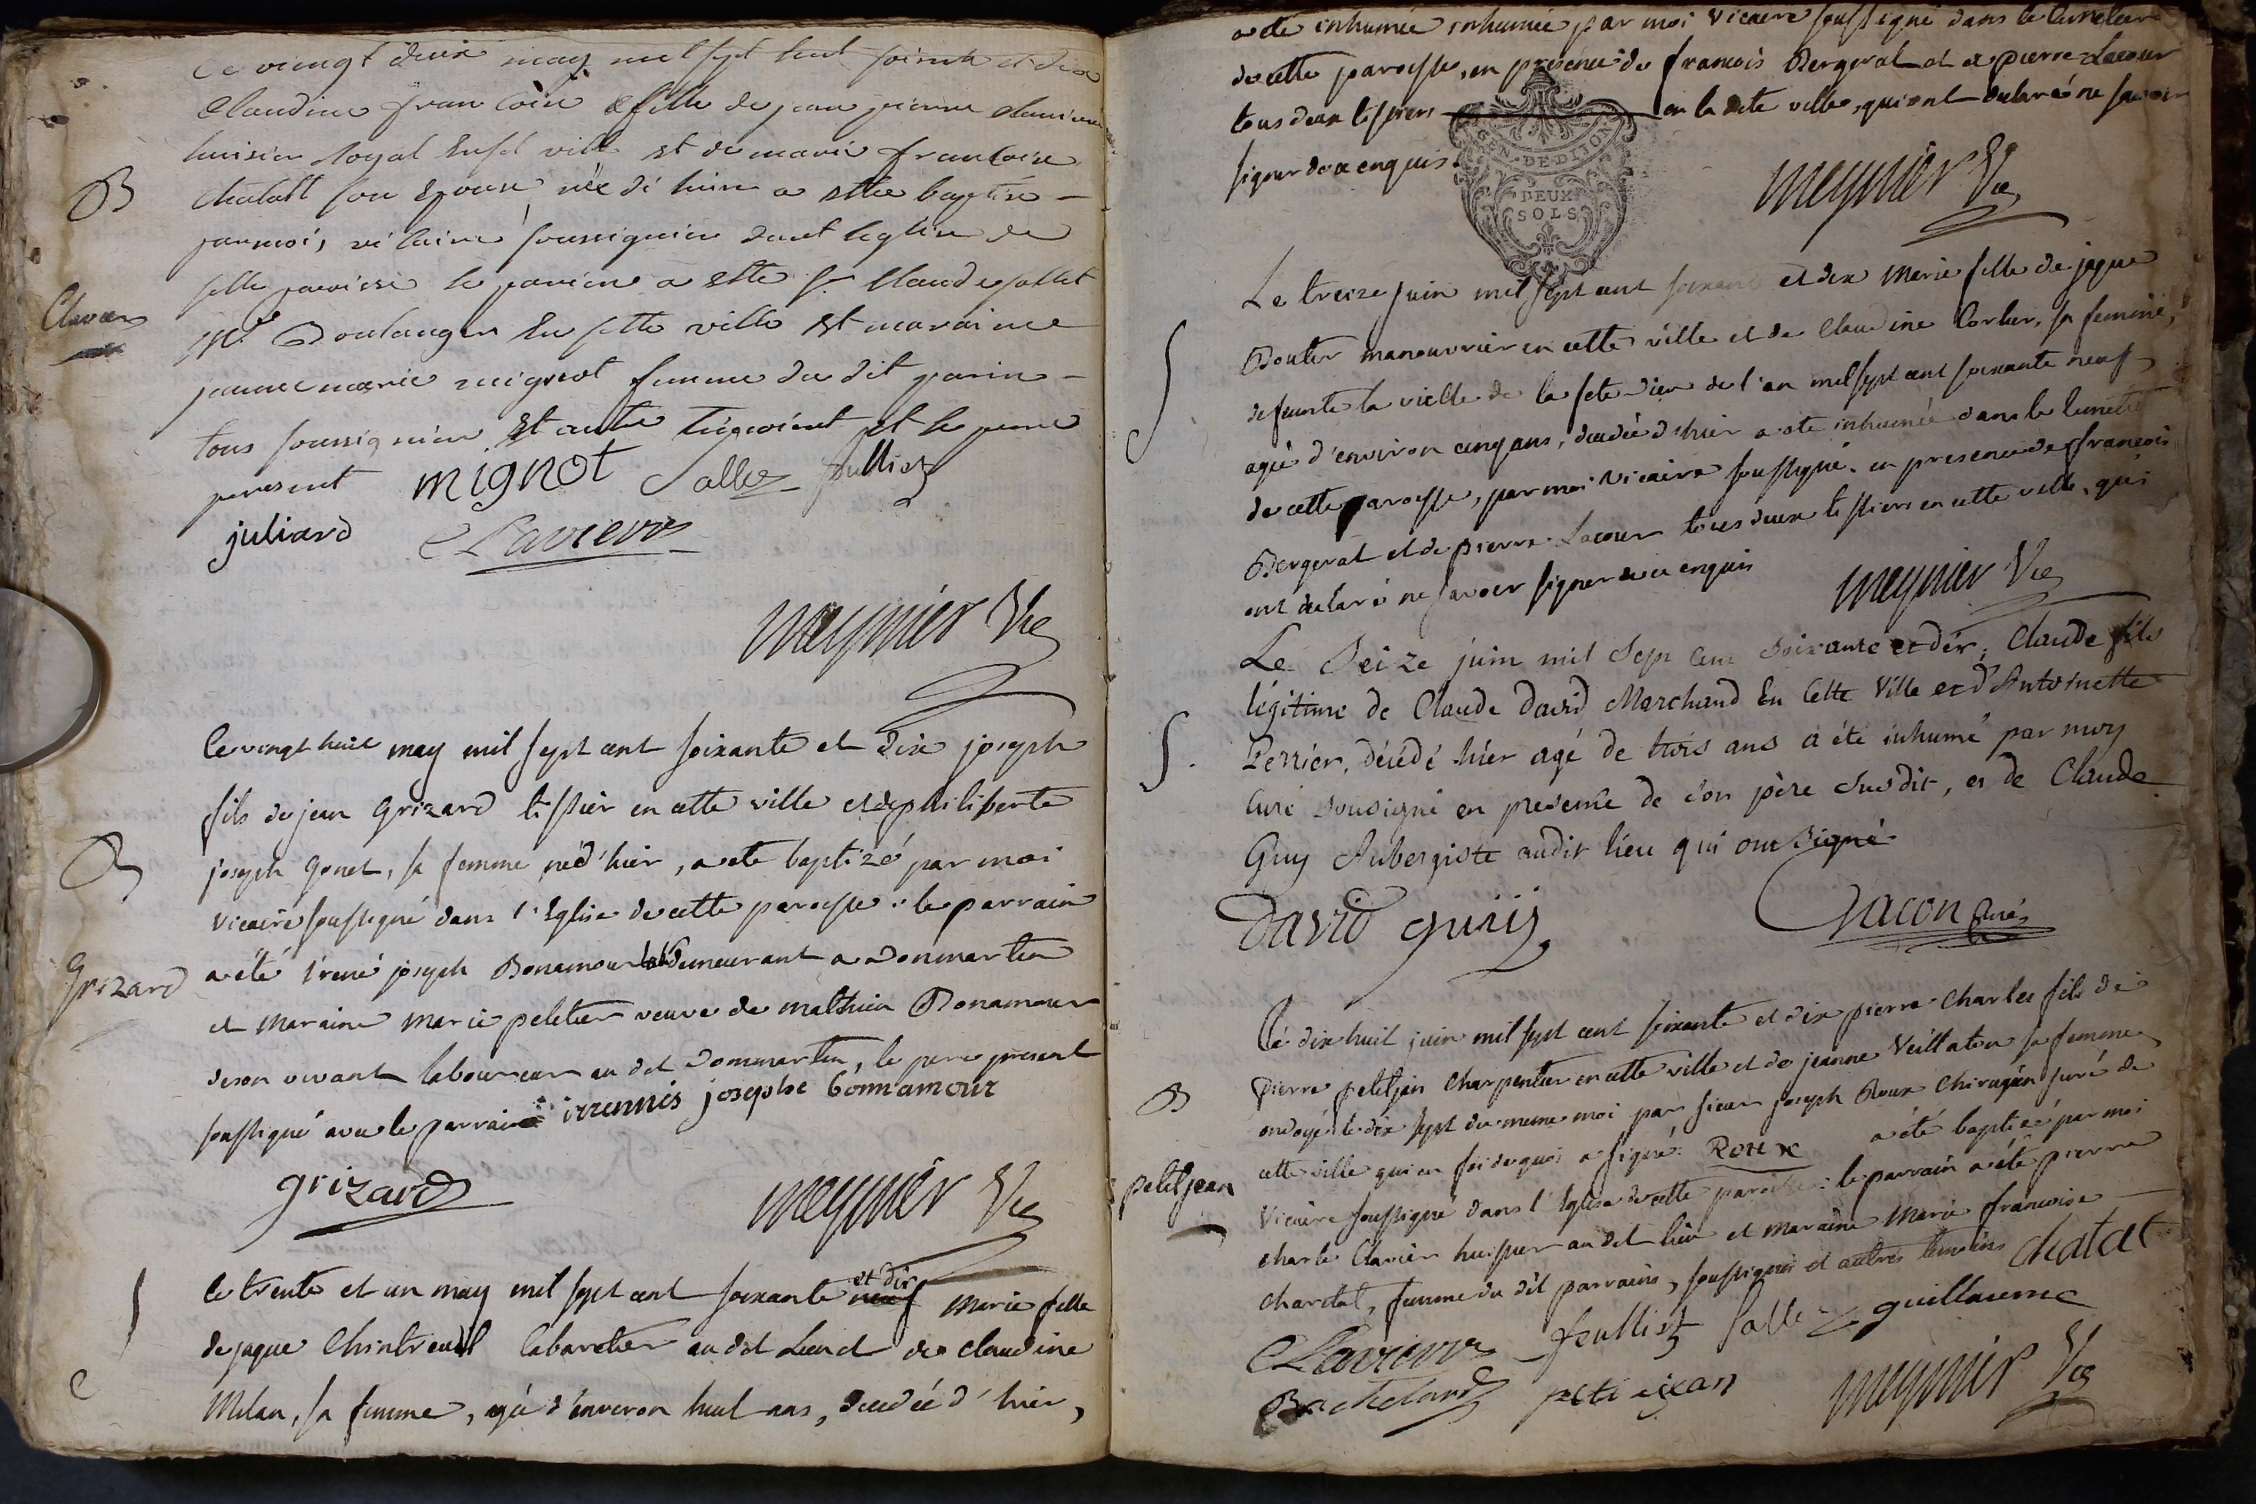 Ce vingt deux may mil sept cent soixante et dix
Claudine francoise fille de jean pierre clavier
huisier Royal en set ville et de marie francoise
chatatt son epouse née di hier a estee baptise
par moi, vicaire soussignier dant leglise de
sette paroisse le parien a ette Sr Claude sallet
Me Boulanger en sette ville et maraine
janne marie mignot femme du dit parin
tous soussignier et autre temoient et le pere
present mignot Sallez
juliard Clavier
meynier Vic
B
Clavier
Le vingt huit may mil sept cent soixante et dix joseph
fils de jean grizard tissier en cette ville et de philiberte
joseph gonet, sa femme né d'hier, a été baptizé par moi
vicaire soussigné dans l'Eglise de cette paroisse : le parrain
a été irené joseph Bonamour demeurant a Donmartin
et maraine marie peletier veuve de mathieu Bonamour
de son vivant laboureur au dit dommartin, le pere present
soussigné avec le parrain irennés josephe bonnamour
grizard meynier Vic
B
Grizard
le trente et un may mil sept cent soixante neuf et dix marie fille
de jaque Chintreuil Cabaretier au dit Lieu et de claudine
Milan, sa femme, agée d'environ huit ans, decedée d'hier,
S
a été inhumée inhumée par moi vicaire soussigné dans le cimetiere
de cette paroisse, en presence de francois Bergerat et de pierre Lacour
tous deux tissiers en la dite ville, qui ont declaré ne savoir
signer de ce enquis
GEN·DE·DIJON
DEUX
SOLS
meynier Vic
Le treize juin mil sept cent soixante et dix Marie fille de jaque
Boutier manouvrier en cette ville et de Claudine Corlier, sa femme,
defeunte la vielle de la fete-Dieu de l'an mil sept cent soixante neuf
agée d'environ cinq ans, decedée d'hier a été inhumée dans le cimetiere
de cette paroisse, par moi vicaire soussigné, en presence de francois
Bergerat et de pierre Lacour tous deux tissiers en cette ville, qui
ont declaré ne savoir signer de ce enquis
meynier Vic
S
Le Seize juin mil Sept cent Soixante et dix, Claude fils
légitime de Claude David Marchand En Cette Ville et d'Antoinette
Perrier, décédé hier agé de trois ans a été inhumé par moy
Curé Sousigné en présence de Son père Susdit, et de Claude
Guy Aubergiste audit lieu qui ont Signé
David guiy Chacon Curé
S.
Le dix huit juin mil sept cent soixante et dix pierre Charles fils de
Pierre petitjan Charpentier en cette ville et de jeanne Veillatou sa femme
ondoyé le dix sept du meme moi par sieur joseph Roux Chirugien juré de
cette ville qui en foi de quoi a signé. Roux a été baptisé par moi
vicaire soussigné dans l'Eglise de cette paroisse : le parrain a été pierre
charle Clavier huissier au dit lieu et maraine Marie francoise
chardat, femme du dit parrain, soussignés et autres temoins Chatat
Clavier Sallez guillaume
Bachelard petitejean meynier Vic
B
petitjean